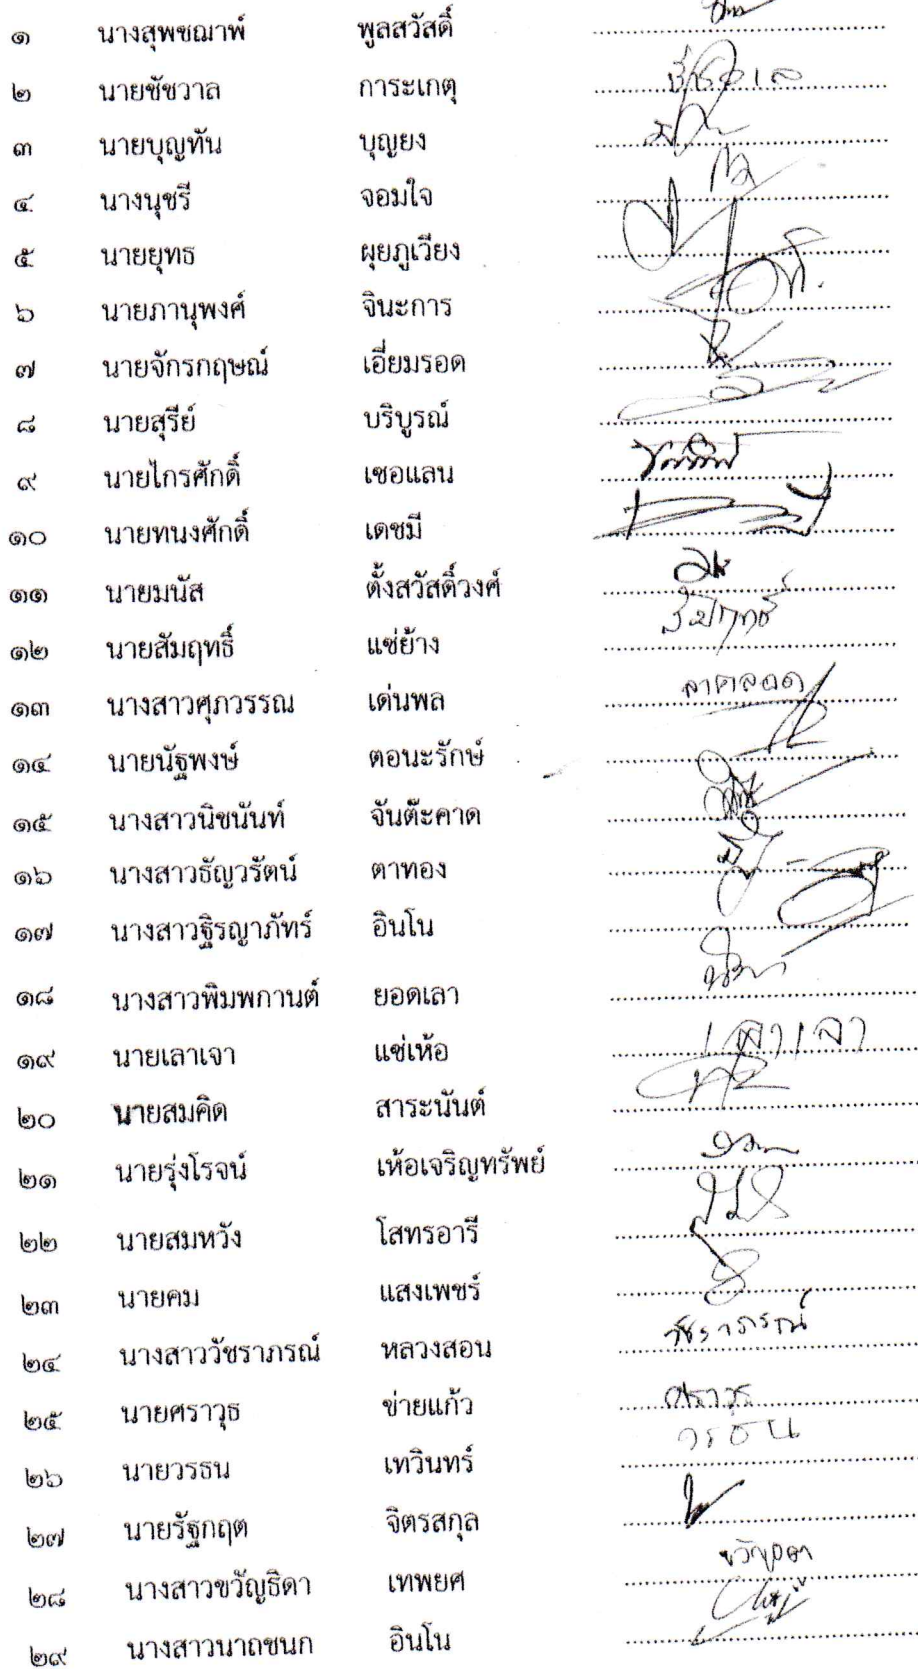 ๑ นางสุพชฌาพ์ พูลสวัสดิ์
๒ นายชัชวาล การะเกตุ ชัชวาล
๓ นายบุญทัน บุญยง
๔ นางนุชรี จอมใจ
๕ นายยุทธ ผุยภูเวียง
๖ นายภานุพงศ์ จินะการ
๗ นายจักรกฤษณ์ เอี่ยมรอด
๘ นายสุรีย์ บริบูรณ์
๙ นายไกรศักดิ์ เชอแลน
๑๐ นายทนงศักดิ์ เดชมี
๑๑ นายมนัส ตั้งสวัสดิ์วงศ์
๑๒ นายสัมฤทธิ์ แซ่ย้าง สัมฤทธิ์
๑๓ นางสาวศุภวรรณ เด่นพล
๑๔ นายนัฐพงษ์ ตอนะรักษ์
๑๕ นางสาวนิชนันท์ จันต๊ะคาด
๑๖ นางสาวธัญวรัตน์ ตาทอง
๑๗ นางสาวฐิรญาภัทร์ อินโน
๑๘ นางสาวพิมพกานต์ ยอดเลา
๑๙ นายเลาเจา แซ่เห้อ
๒๐ นายสมคิด สาระนันต์
๒๑ นายรุ่งโรจน์ เห้อเจริญทรัพย์
๒๒ นายสมหวัง โสทรอารี
๒๓ นายคม แสงเพชร์
๒๔ นางสาววัชราภรณ์ หลวงสอน วัชราภรณ์
๒๕ นายศราวุธ ข่ายแก้ว ศราวุธ
๒๖ นายวรธน เทวินทร์ วรธน
๒๗ นายรัฐกฤต จิตรสกุล
๒๘ นางสาวขวัญธิดา เทพยศ
๒๙ นางสาวนาถชนก อินโน